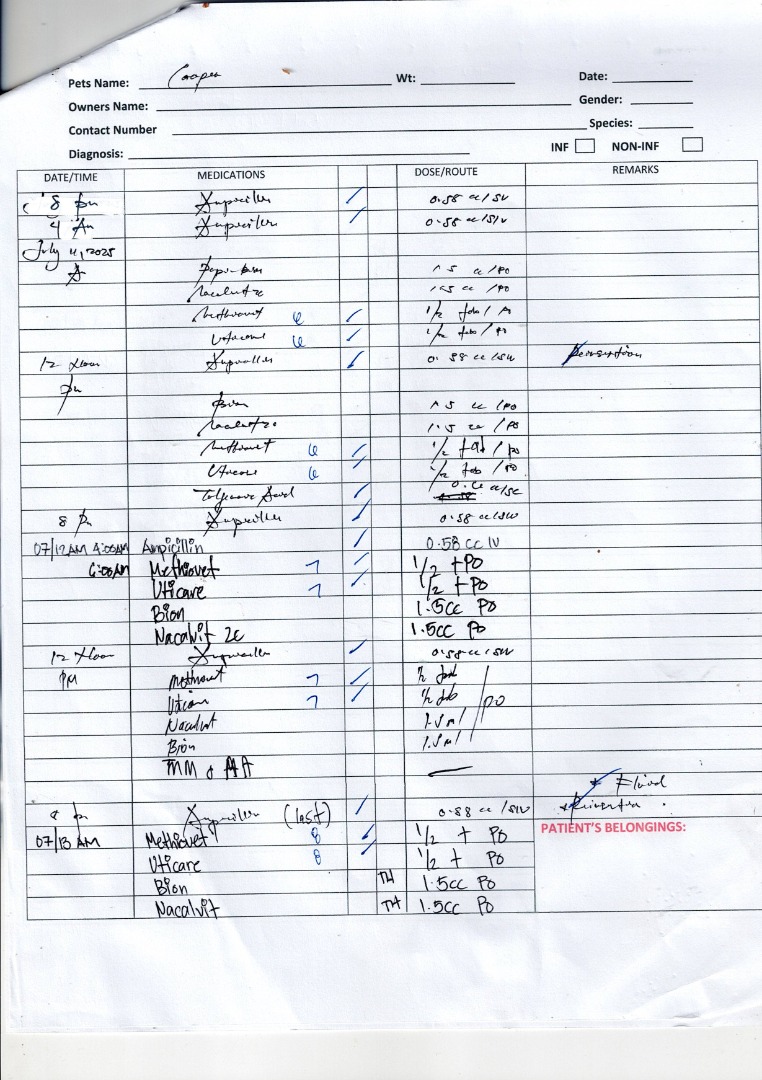 Pets Name: Cooper Wt: Date:
Owners Name: Gender:
Contact Number Species:
Diagnosis: INF NON-INF
DATE/TIME MEDICATIONS DOSE/ROUTE REMARKS
8 pm 0.58 cc/SIV
4 AM 0.58 cc/SIV
July 11, 2025
A 1.5 cc /PO
1.5 cc /PO
Methiovet 6 1/2 tab/ PO
Uticare 6 1/2 tab / PO
12 noon 0.58 cc/SIV Reinsertion
pm
Bion 1.5 cc /PO
1.5 cc /PO
Methiovet 6 1/2 tab / PO
Uticare 6 1/2 tab / PO
cc/SC
8 pm 0.58 cc/SIV
07/12AM 4:00AM Ampicillin 0.58 cc IV
6:00AM Methiovet 7 1/2 + PO
Uticare 7 1/2 + PO
Bion 1.5cc PO
Nacalvit 2c 1.5cc PO
12 noon 0.58 cc/SIV
PM Methiovet 7 1/2 tab
Uticare 7 1/2 tab PO
Nacalvit 1.5ml
Bion 1.5ml
* Fluid
pm (last) 0.58 cc/SIV
07/13 AM Methiovet 8 1/2 + PO PATIENT'S BELONGINGS:
Uticare 8 1/2 + PO
Bion TH 1.5cc PO
Nacalvit TH 1.5cc PO